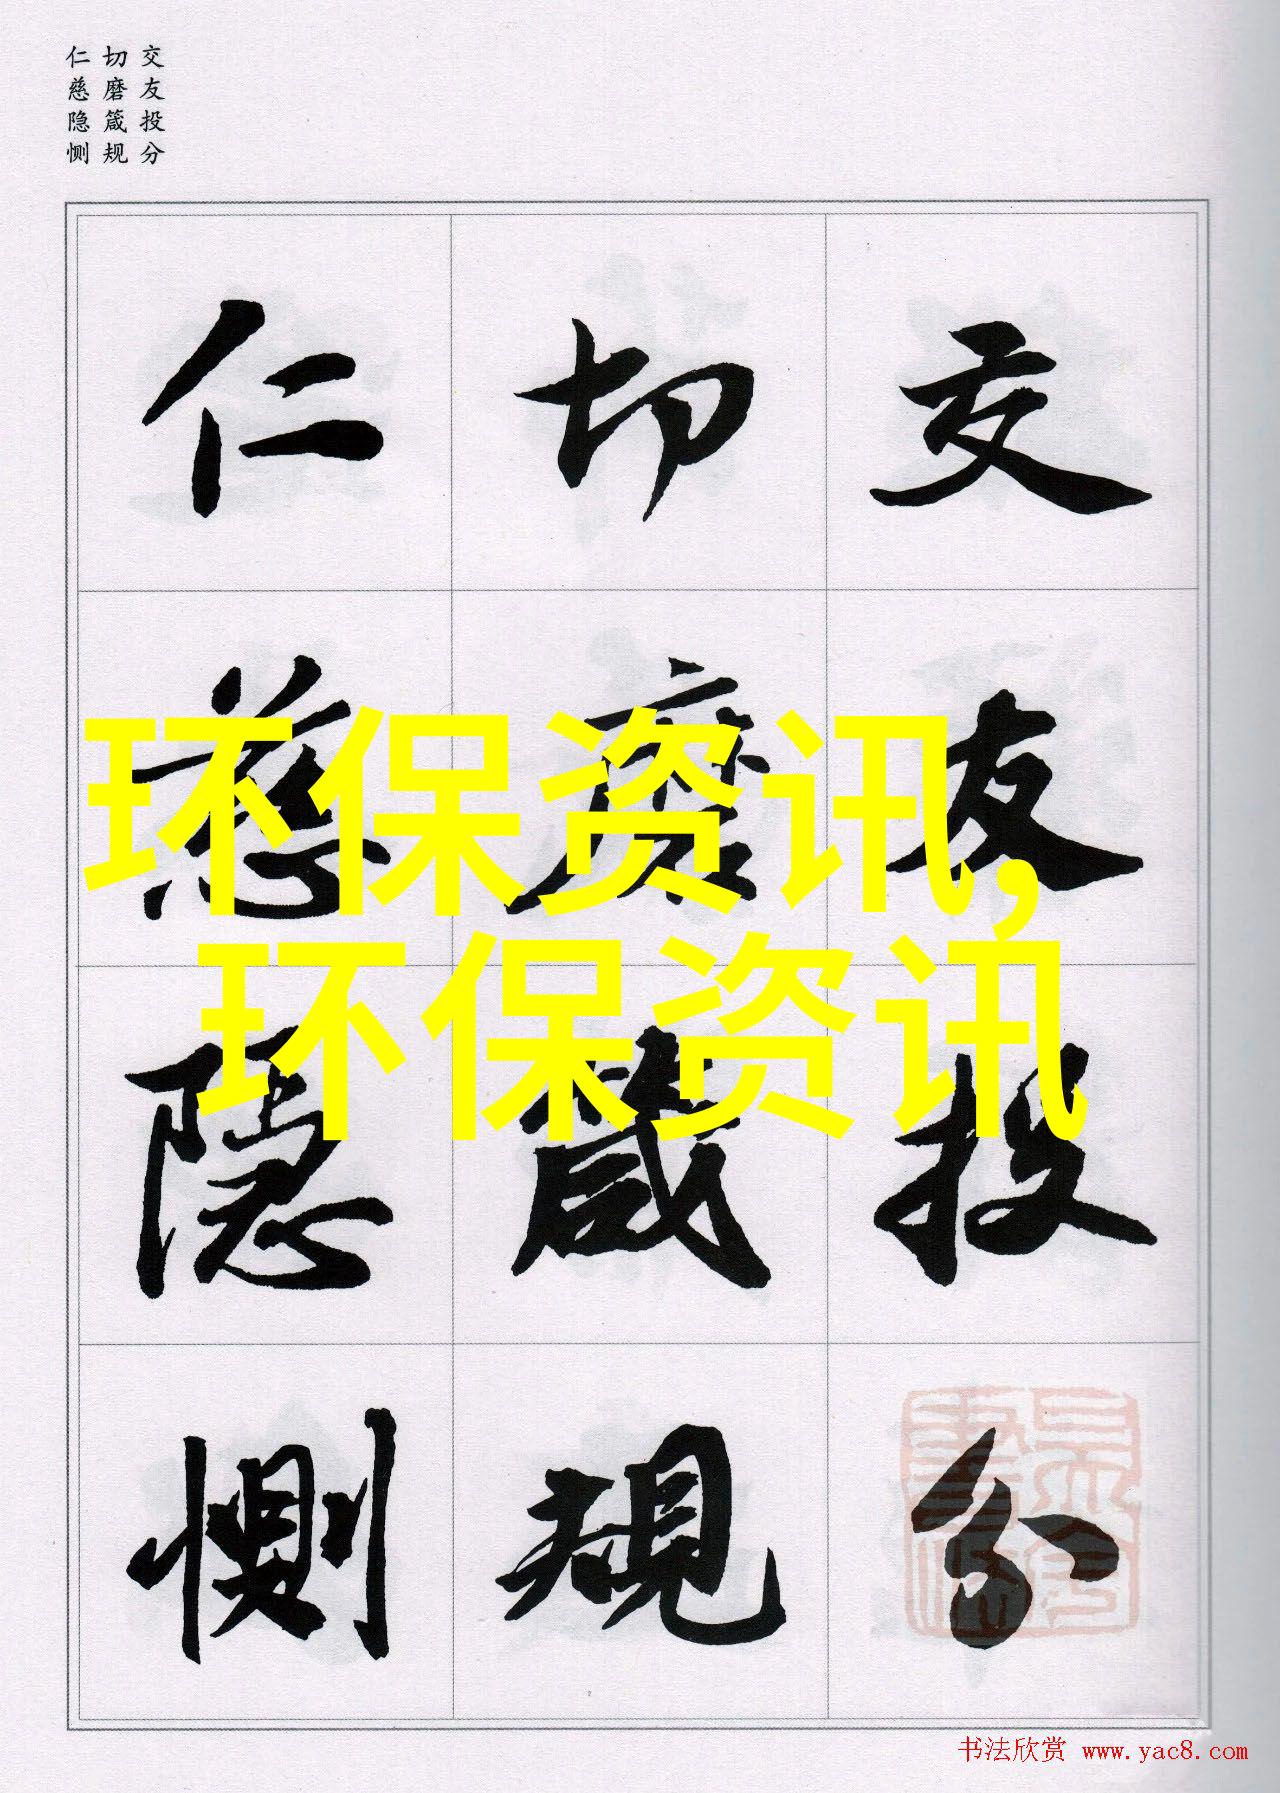 交友投分
切磨箴规
仁慈隐恻
交友投分
切磨箴規
仁慈隐恻
环保资讯,
环保资讯
书法欣赏 www.yac8.com